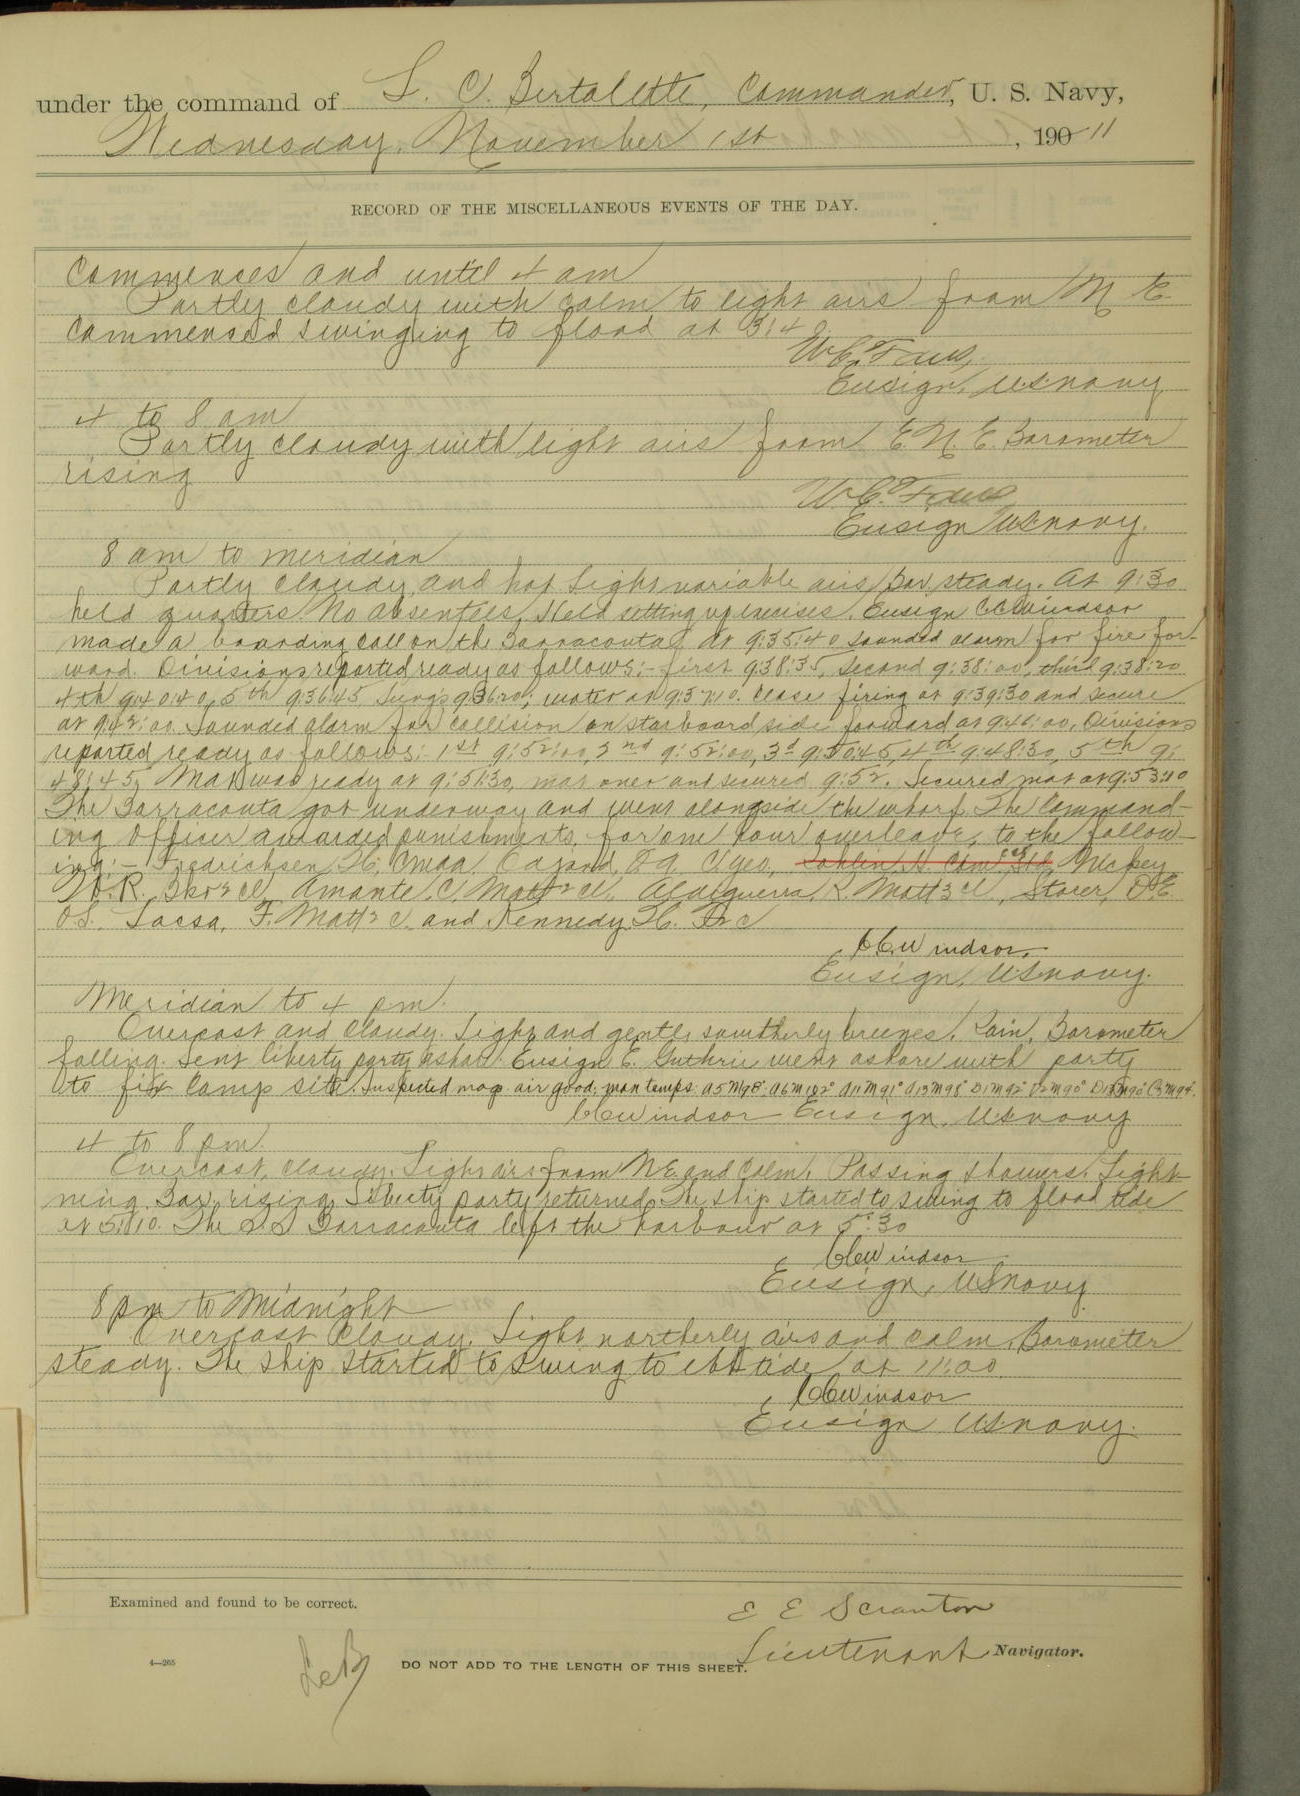 under the command of L. C. Bertolette, Commander, U. S. Navy,
Wednesday, November 1st, 19011
RECORD OF THE MISCELLANEOUS EVENTS OF THE DAY.
Commences and until 4 am
Partly cloudy with calm to light airs from N E.
Commenced swinging to flood at 3:40.
Ensign, U.S. Navy
4 to 8 am
Partly cloudy with light airs from E.N.E. Barometer
rising
Ensign U.S. Navy.
8 am to meridian
Partly cloudy and hot. Light variable airs. Bar. steady. At 9:30
held quarters. No absentees. Held setting up exercises. Ensign C.C. Windsor
made a boarding call on the Barracouta. At 9:35:40 sounded alarm for fire for-
ward. Divisions reported ready as follows:- first 9:38:35, second 9:38:00, third 9:38:20
4th 9:40:40, 5th 9:36:45 water at 9:37:10. Cease firing at 9:39:30 and secure
at 9:42:00. Sounded alarm for collision on starboard side forward at 9:46:00. Divisions
reported ready as follows: 1st 9:52:00, 2nd 9:52:00, 3d 9:50:45, 4th 9:48:30, 5th 9:
48:45, Mat was ready at 9:51:30, mat over and secured 9:52. Secured mat at 9:53:10
The Barracouta got underway and went alongside the wharf. The Command-
ing Officer awarded punishments, for one hour overleave, to the follow-
ing:- Fredrichsen, H. CMAA. C Yeo, Hickey
W.R. Amante, C. Matt 2 cl, R. Matt 3 cl, Storer, O.E.
O.S. Sassa, F. Matt 2 c. and Kennedy, H.
CC Windsor,
Ensign, U.S. Navy.
Meridian to 4 pm.
Overcast and cloudy. Light and gentle southerly breezes. Rain. Barometer
falling. Sent liberty party ashore. Ensign E. Guthrie went ashore with party
to fix camp site. Inspected mags. air good, max temps: A5M98° A6M102° A11M91° A13M98° D1M92° D2M90° C3M94°.
CC Windsor Ensign, U.S. Navy
4 to 8 pm.
Overcast, cloudy. Light airs from N.E. and calm. Passing showers. Light-
ning. Bar. rising. Liberty party returned. The ship started to swing to flood tide
at 5:10. The S.S. Barracouta left the harbour at 5:30
CC Windsor
Ensign, U.S. Navy
8 pm to Midnight
Overcast cloudy. Light northerly airs and calm. Barometer
steady. The ship started to swing to ebb tide at 11:00.
CC Windsor
Ensign U.S. Navy.
Examined and found to be correct.
E E Scranton
Lieutenant Navigator.
LCB
4—265
DO NOT ADD TO THE LENGTH OF THIS SHEET.